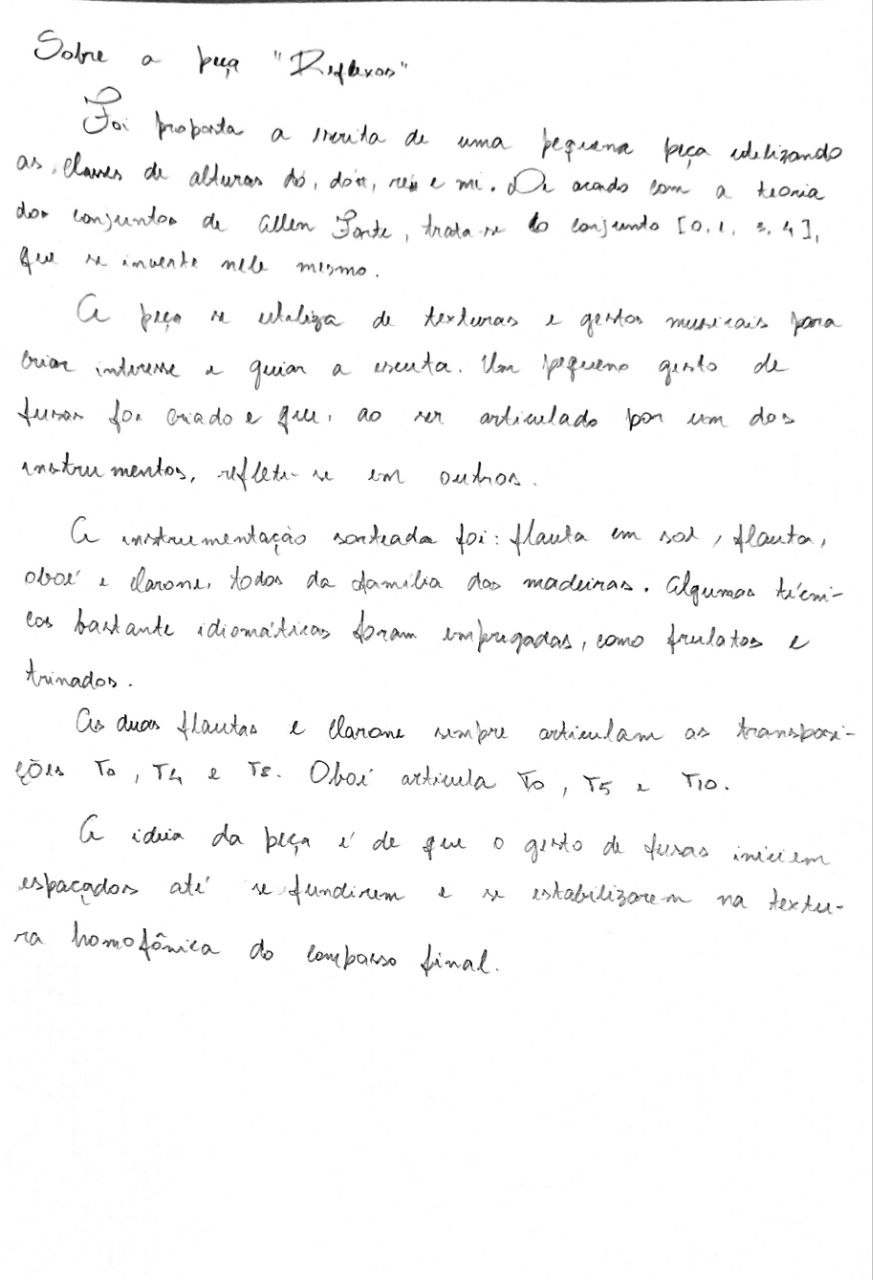 Sobre a peça "Reflexos"
Foi proposta a escrita de uma pequena peça utilizando
as classes de alturas dó, dó#, ré# e mi. De acordo com a teoria
dos conjuntos de Allen Forte, trata-se do conjunto [0, 1, 3, 4],
que se invente nele mesmo.
A peça se utiliza de texturas e gestos musicais para
criar interesse e guiar a escuta. Um pequeno gesto de
fusas foi criado e que, ao ser articulado por um dos
instrumentos, reflete-se em outros.
A instrumentação sorteada foi: flauta em sol, flauta,
oboé e clarone, todos da família das madeiras. Algumas técni-
cas bastante idiomáticas foram empregadas, como frulatos e
trinados.
As duas flautas e clarone sempre articulam as transposi-
ções T0, T4 e T8. Oboé articula T0, T5 e T10.
A ideia da peça é de que o gesto de fusas iniciem
espaçados até se fundirem e se estabilizarem na textu-
ra homofônica do compasso final.